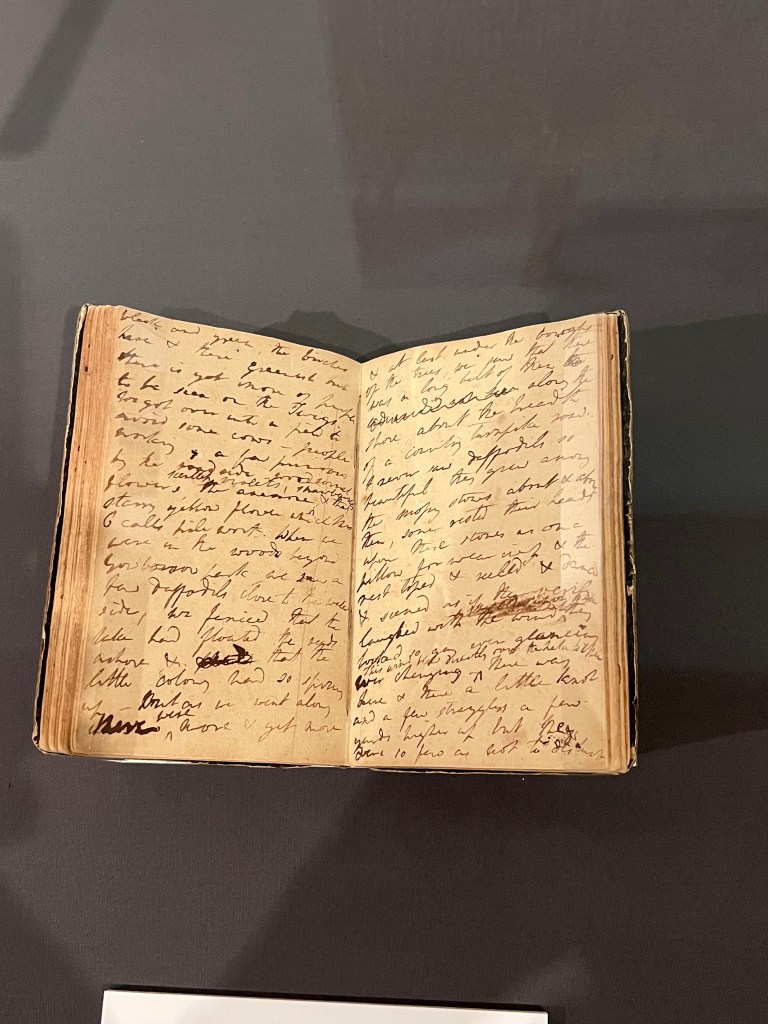 black and green, the birches
here & there greenish but
there is yet more of purple
to be seen on the Twigs.
We got over into a field to
avoid some cows - people
working, & a few primroses
by the roadside, wood sorrel
scentless violets, strawberries
flowers, the anemone & that
starry yellow flower which Mrs
C calls pile wort. When we
were in the woods beyond
Gowbarrow park we saw a
few daffodils close to the water
side, we fancied that the
lake had floated the seeds
ashore & that the
little colony had so sprung
up - But as we went along
there were more & yet more
& at last under the boughs
of the trees, we saw that there
was a long belt of them
along the
shore, about the breadth
of a country turnpike road.
I never saw daffodils so
beautiful they grew among
the mossy stones about & about
them, some rested their heads
upon these stones as on a
pillow for weariness & the
rest tossed & reeled & danced
& seemed as if they verily
laughed with the wind
looked so gay ever glancing
this wind blew directly over the lake to them
ever changing. There was
here & there a little knot
and a few stragglers a few
yards higher up but they
were so few as not to disturb